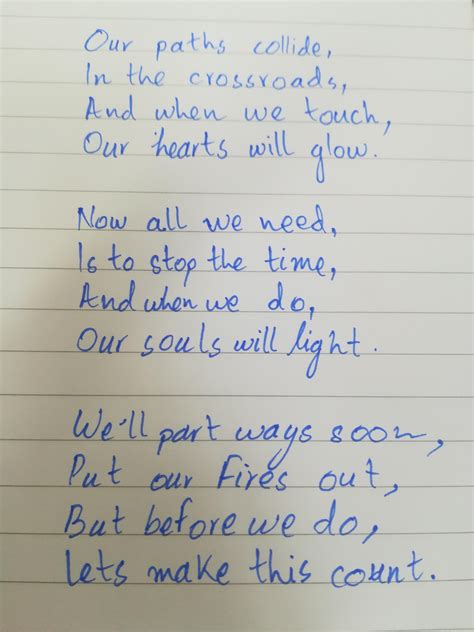 Our paths collide,
In the crossroads,
And when we touch,
Our hearts will glow.
Now all we need,
Is to stop the time,
And when we do,
Our souls will light.
We'll part ways soon,
Put our fires out,
But before we do,
Lets make this count.